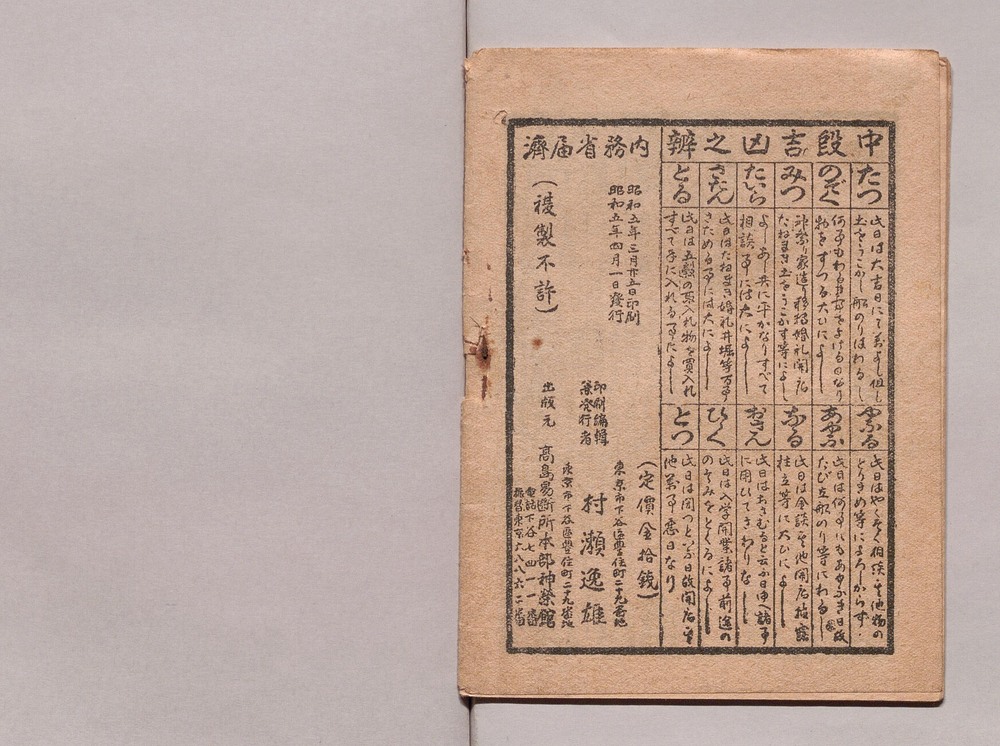 中段吉凶之辨
たつ
此日は大吉日にて萬よし但し
土をうごかし船のりはわるし
のぞく
物をすつる大ひによし
みつ
神祭り家造り移轉婚礼開店
たねまき土をうごかす等によし
たいら
よしあし共に平かなりすべて
相談事には大によし
さだん
此日はたねまき婚礼井堀等万事
さだめる事には大によし
とる
此日は五穀の取入れ物を買入れ
すべて手に入れる事によし
やぶる
とりきめ等によろしからず
あやぶ
此日は何事にもあやふき日故
たび立船のり等にわるし
なる
柱立等に大ひによし
おさん
此日はおさむると云ふ日ゆへ諸事
に用ひてさわりなし
ひらく
此日は入学開業諸事前途の
のぞみをとぐるによし
とつ
他萬事悪日なり
内務省届濟
昭和五年三月廿五日印刷
昭和五年四月一日發行
(複製不許)
(定價金拾錢)
東京市下谷區豐住町二十九番地
印刷編輯
兼発行者
村瀬逸雄
東京市下谷區豐住町二十九番地
出版元 高島易断所本部神榮館
電話下谷七四一一番
振替東京六八八六二番